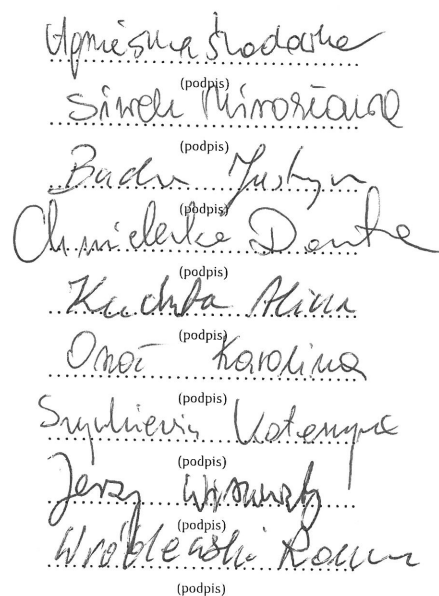 Agnieszka Środawka
(podpis)
Siwek Mirosława
(podpis)
Badu Justyn
(podpis)
Chmielecka Danuta
(podpis)
Kuchta Alina
(podpis)
Onoś Karolina
(podpis)
Kateryna
(podpis)
Jerzy
(podpis)
Wróblewski Roman
(podpis)